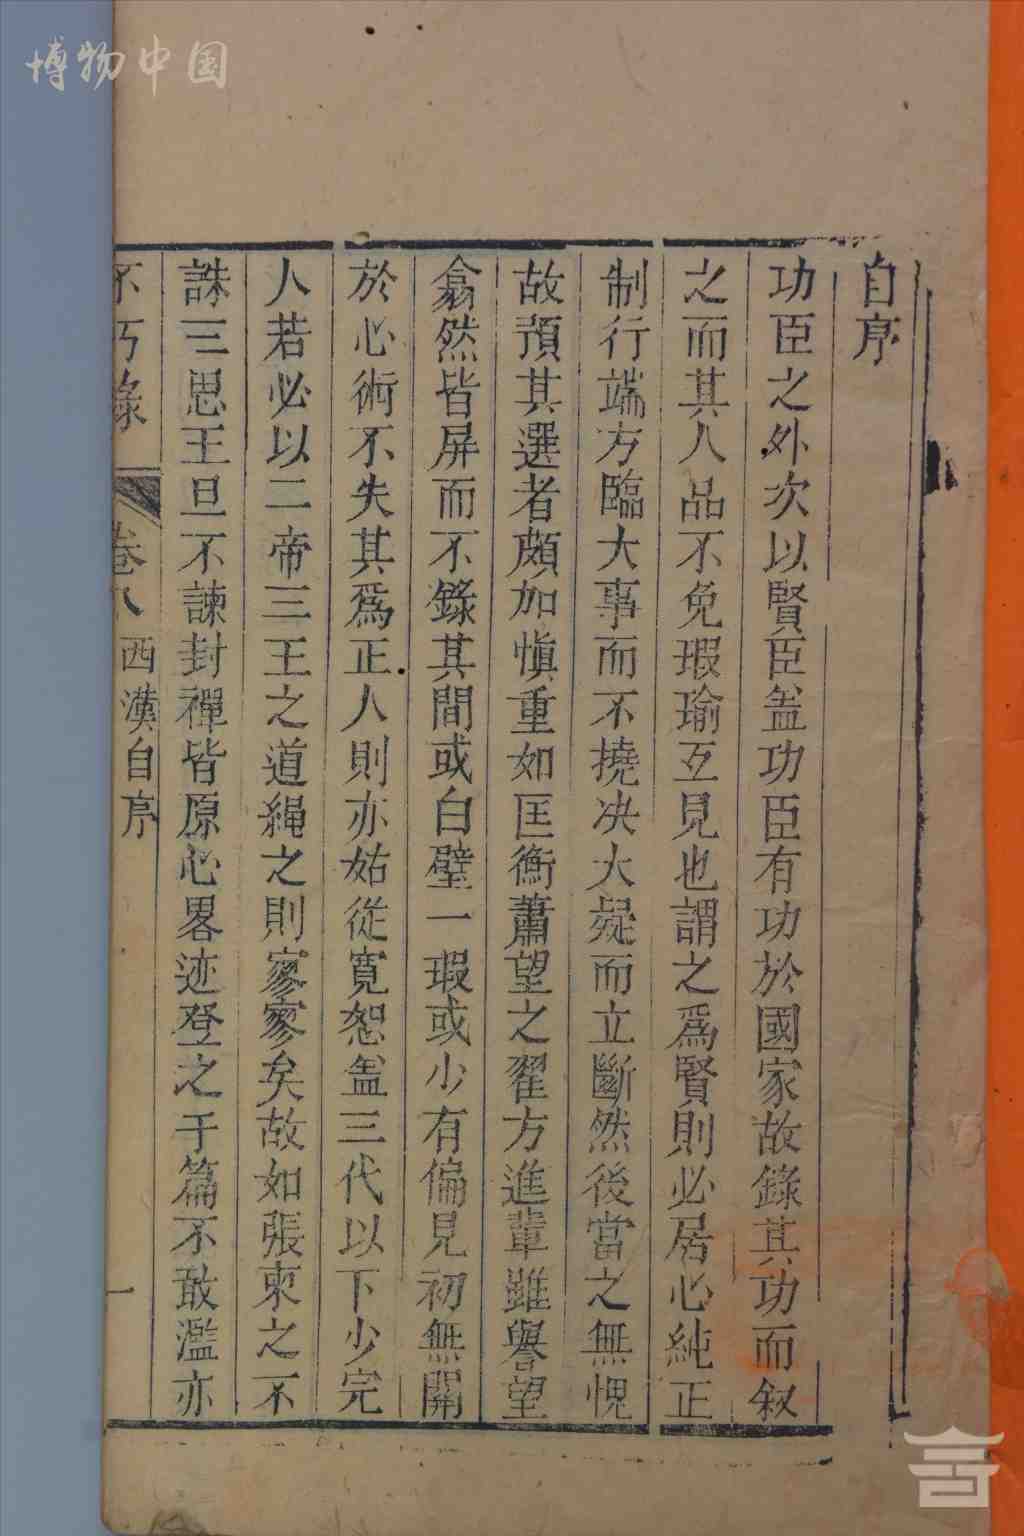 博物中国
自序
功臣之外次以賢臣盖功臣有功於國家故錄其功而叙
之而其人品不免瑕瑜互見也謂之爲賢則必居心純正
制行端方臨大事而不撓决大疑而立斷然後當之無愧
故預其選者頗加愼重如匡衡蕭望之翟方進輩雖譽望
翕然皆屏而不錄其間或白璧一瑕或少有偏見初無關
於心術不失其爲正人則亦姑從寬恕盖三代以下少完
人若必以二帝三王之道繩之則寥寥矣故如張柬之不
誅三思王旦不諫封禪皆原心畧迹登之于篇不敢濫亦
不朽錄 卷八 西漢自序 一